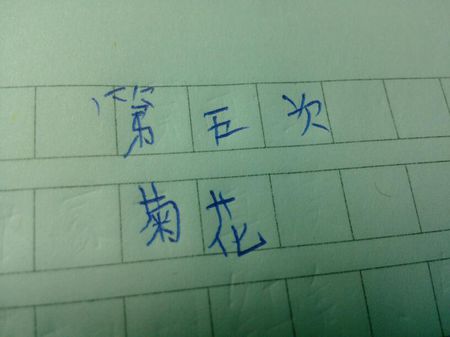 第五次
菊花